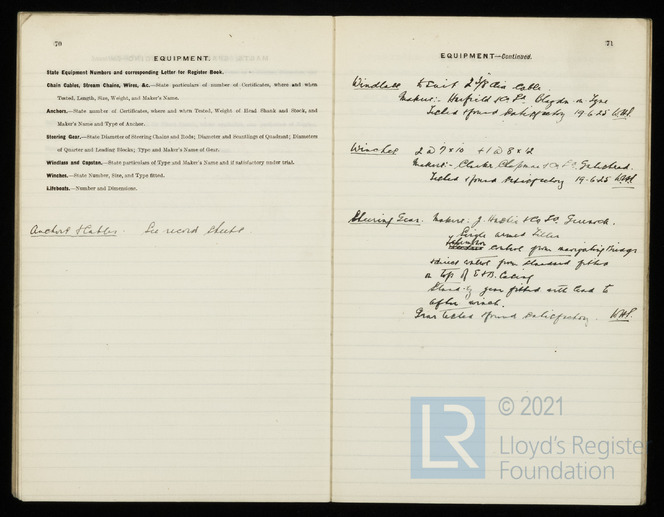 70
EQUIPMENT.
State Equipment Numbers and corresponding Letter for Register Book.
Chain Cables, Stream Chains, Wires, &c.—State particulars of number of Certificates, where and when
Tested, Length, Size, Weight, and Maker's Name.
Anchors.—State number of Certificates, where and when Tested, Weight of Head Shank and Stock, and
Maker's Name and Type of Anchor.
Steering Gear.—State Diameter of Steering Chains and Rods; Diameter and Scantlings of Quadrant; Diameters
of Quarter and Leading Blocks; Type and Maker's Name of Gear.
Windlass and Capstan.—State particulars of Type and Maker's Name and if satisfactory under trial.
Winches.—State Number, Size, and Type fitted.
Lifeboats.—Number and Dimensions.
Anchors & Cables. See record sheets.
71
EQUIPMENT—Continued.
Windlass to suit 2 1/8 dia cable.
Makers:- & Co Ld. on Tyne
Tested & found satisfactory 19.6.25
Winches 2 @ 7 x 10 + 1 @ 8 x 12
Makers:- Clarke, Chapman & Co Ld. Gateshead.
Tested & found satisfactory 19-6-25
Steering Gear. Makers: J. Hastie & Co Ld. Greenock.
Single armed tiller
Telemotor control from navigating bridge
control from standard fitted
on top of casing
Stand-by gear fitted with lead to
after winch.
Gear tested & found satisfactory.
LR
© 2021
Lloyd's Register
Foundation